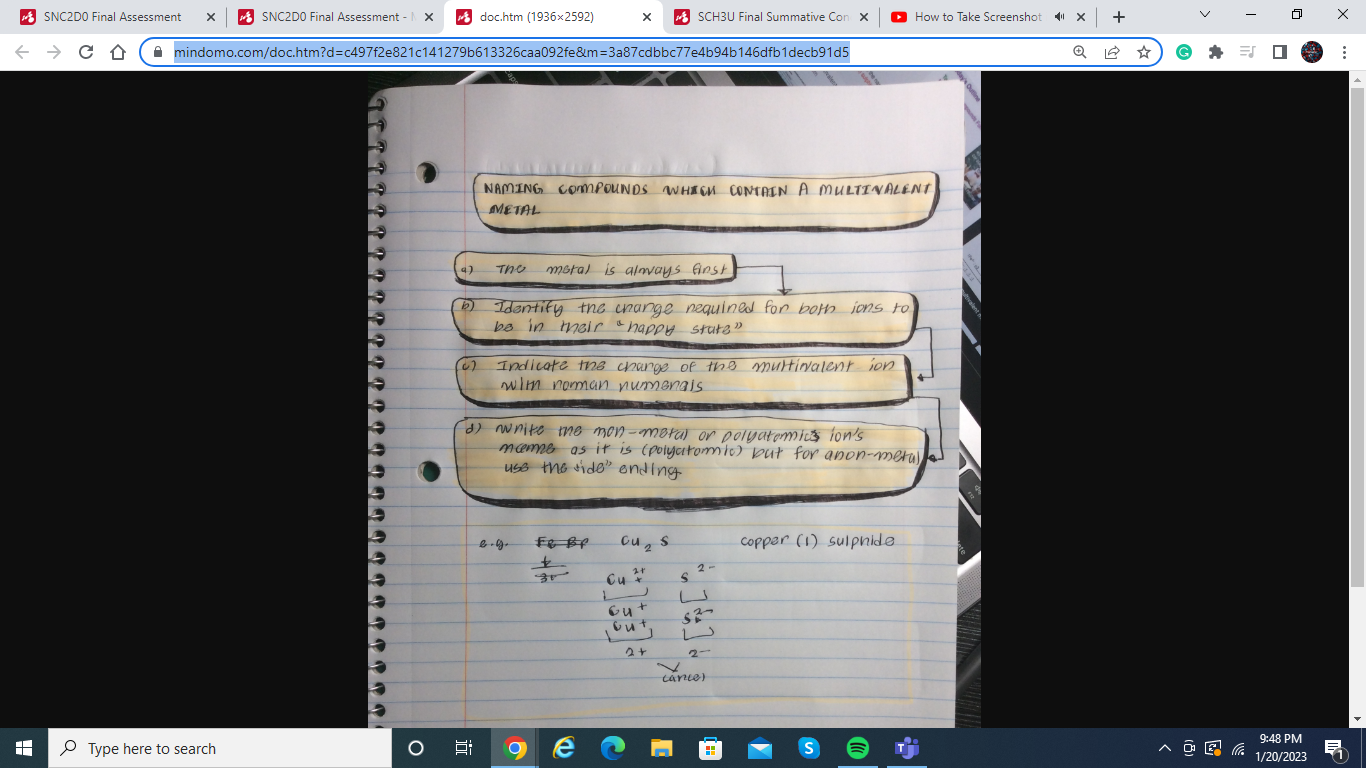 SNC2D0 Final Assessment
SNC2D0 Final Assessment -
doc.htm (1936×2592)
SCH3U Final Summative Con
How to Take Screenshot
mindomo.com/doc.htm?d=c497f2e821c141279b613326caa092fe&m=3a87cdbbc77e4b94b146dfb1decb91d5
NAMING COMPOUNDS WHICH CONTAIN A MULTIVALENT
METAL
a) The metal is always first
b) Identify the charge required for both ions to
be in their "happy state"
c) Indicate the charge of the multivalent ion
with roman numerals
d) Write the non-metal or polyatomic ion's
name as it is (polyatomic) but for a non-metal
use the "ide" ending.
e.g. Cu2 S copper (1) sulphide
Cu 2+ + S 2-
Cu + S 2-
Cu +
2+ 2-
cancel
Type here to search
9:48 PM
1/20/2023
1